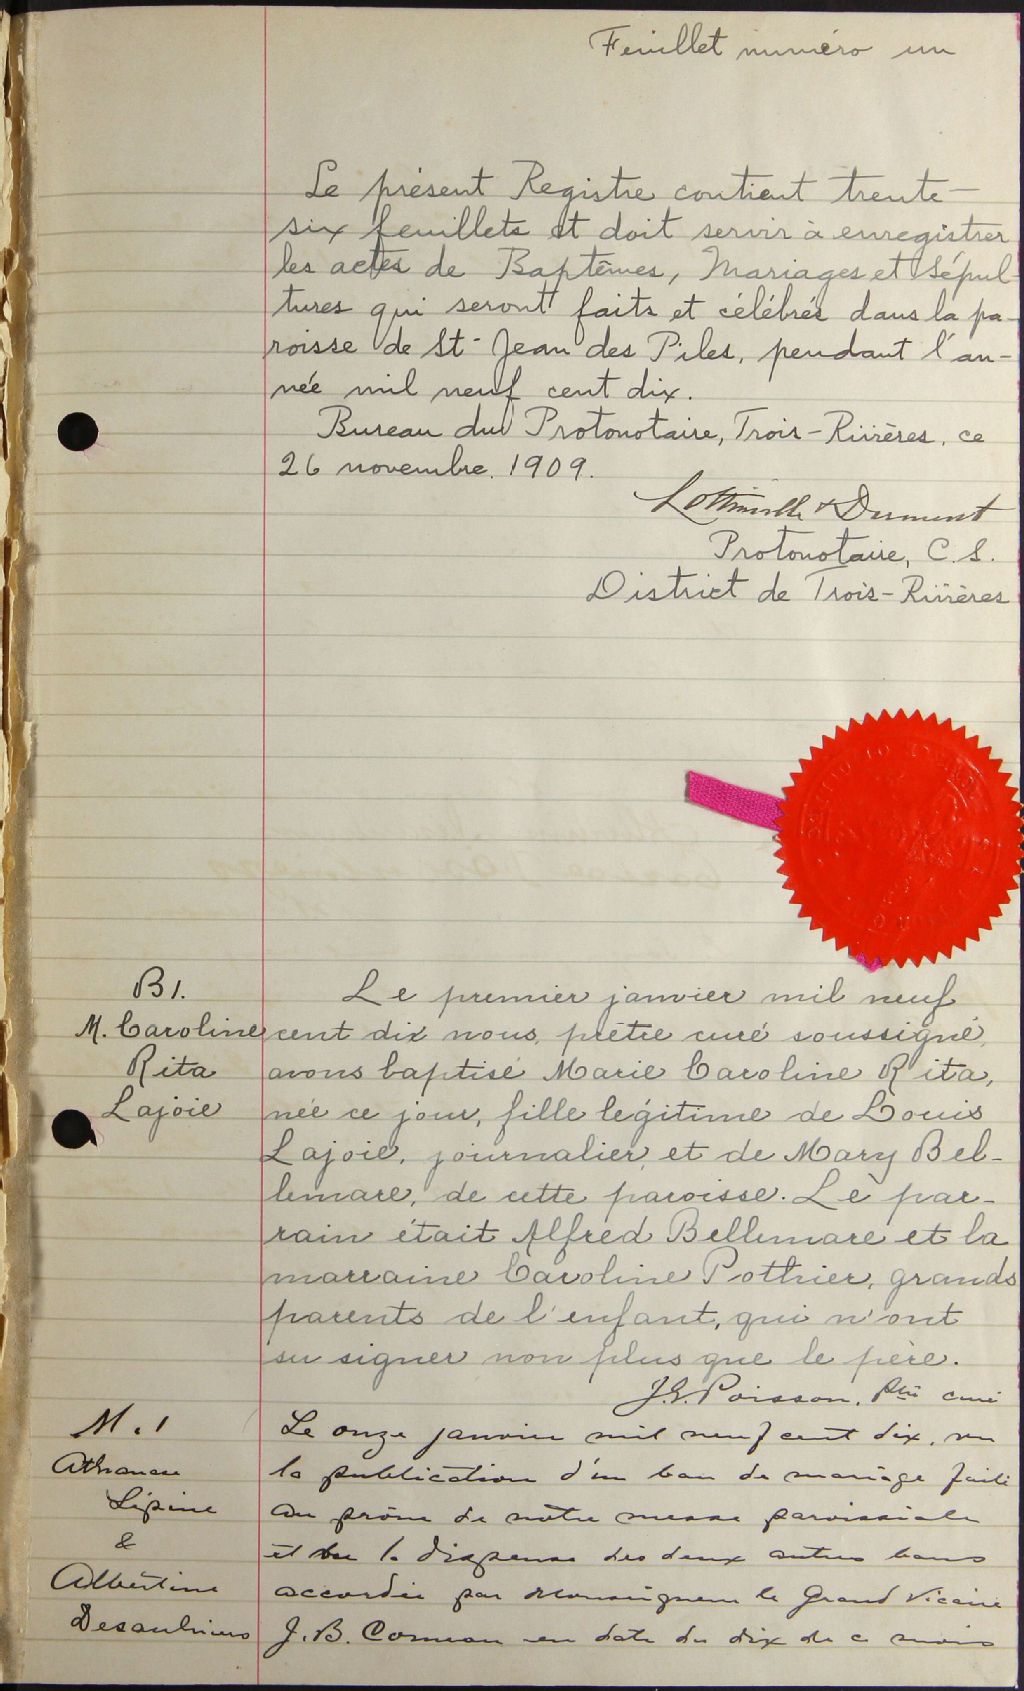 Feuillet numéro un
Le présent Registre contient trente-
six feuillets et doit servir à enregistrer
les actes de Baptêmes, Mariages et Sépul-
tures qui seront faits et célébrés dans la pa-
roisse de St-Jean des Piles, pendant l'an-
née mil neuf cent dix.
Bureau du Protonotaire, Trois-Rivières, ce
26 novembre. 1909.
Lottinville & Dumont
Protonotaire, C.S.
District de Trois-Rivières
B1.
M. Caroline
Rita
Lajoie
Le premier janvier mil neuf
cent dix nous, prêtre curé soussigné,
avons baptisé Marie Caroline Rita,
née ce jour, fille légitime de Louis
Lajoie, journalier, et de Mary Bel-
lemare, de cette paroisse. Le par-
rain était Alfred Bellemare et la
marraine Caroline Pothier, grands
parents de l'enfant, qui n'ont
su signer non plus que le père.
Poisson, Ptre curé
M. 1
Athanase
Lépine
&
Albertine
Desaulniers
Le onze janvier mil neuf cent dix, vu
la publication d'un ban de mariage faite
au prône de notre messe paroissiale
et vu la dispense des deux autres bans
accordée par Monseigneur le Grand Vicaire
J. B. Comeau en date du dix de ce mois